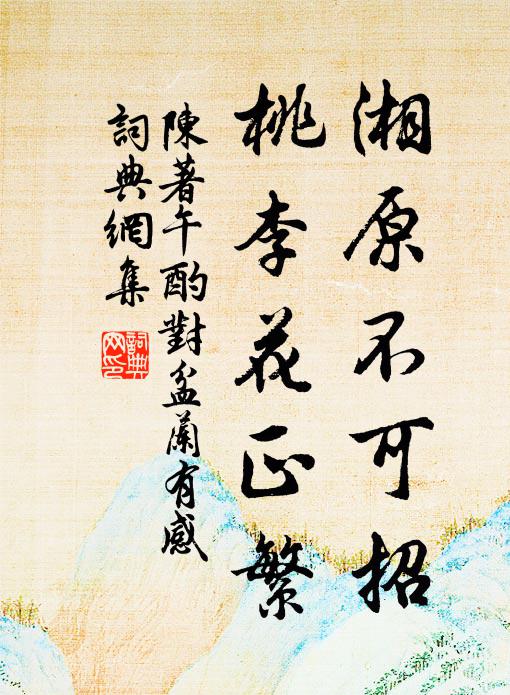 湘原不可招
桃李花正繁
陳著午酌對盆蘭有感
詞典網集
詞典
网印